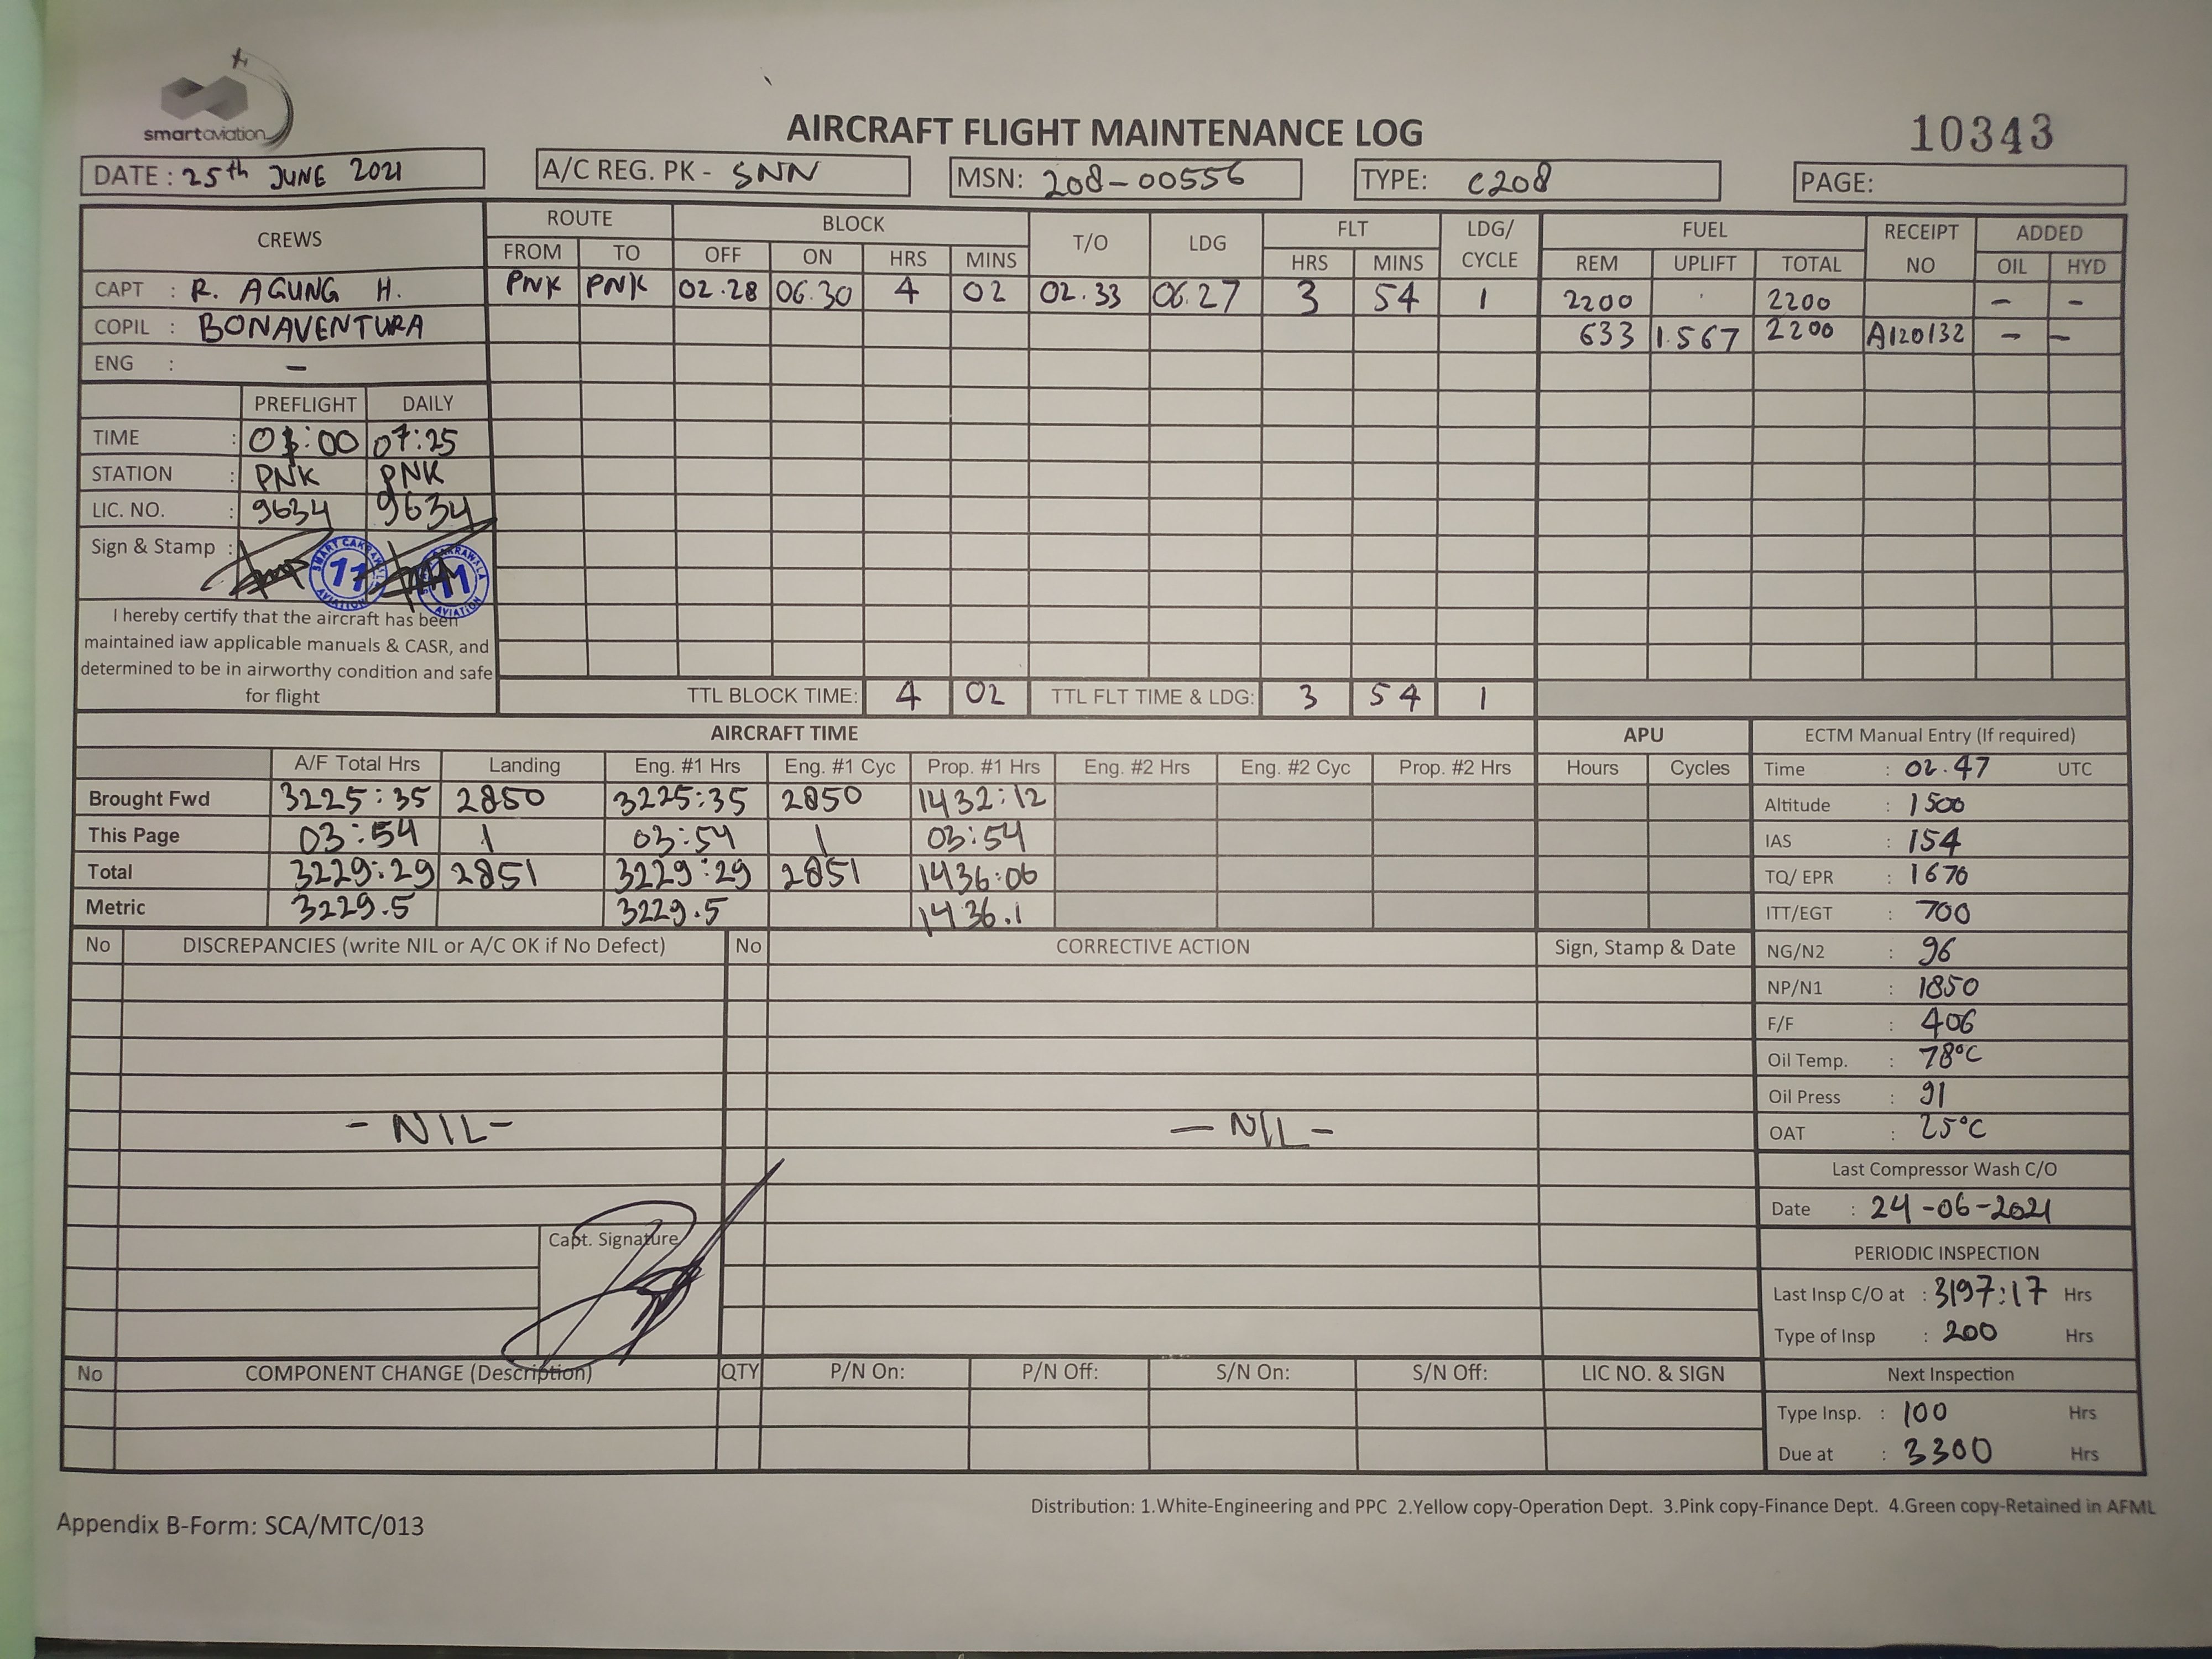 smart aviation
AIRCRAFT FLIGHT MAINTENANCE LOG
10343
DATE : 25th JUNE 2021
A/C REG. PK - SNN
MSN: 208-00556
TYPE: C208
PAGE:
CREWS ROUTE BLOCK T/O LDG FLT LDG/ CYCLE FUEL RECEIPT NO ADDED
FROM TO OFF ON HRS MINS HRS MINS REM UPLIFT TOTAL OIL HYD
CAPT : R. AGUNG H. PNK PNK 02.28 06.30 4 02 02.33 06.27 3 54 1 2200 2200 - -
COPIL : BONAVENTURA 633 1.567 2200 A120132 - -
ENG : -
PREFLIGHT DAILY
TIME : 07:25
STATION : PNK PNK
LIC. NO. : 9634 9634
Sign & Stamp :
SMART CAKRAWALA AVIATION 11
11 AVIATION
I hereby certify that the aircraft has been
maintained iaw applicable manuals & CASR, and
determined to be in airworthy condition and safe
for flight
TTL BLOCK TIME: 4 02 TTL FLT TIME & LDG: 3 54 1
AIRCRAFT TIME APU
A/F Total Hrs Landing Eng. #1 Hrs Eng. #1 Cyc Prop. #1 Hrs Eng. #2 Hrs Eng. #2 Cyc Prop. #2 Hrs Hours Cycles
Brought Fwd 3225:35 2850 3225:35 2850 1432:12
This Page 03:54 1 03:54 1 03:54
Total 3229:29 2851 3229:29 2851 1436:06
Metric 3229.5 3229.5 1436.1
ECTM Manual Entry (If required)
Time : 02.47 UTC
Altitude : 1500
IAS : 154
TQ/ EPR : 1670
ITT/EGT : 700
NG/N2 : 96
NP/N1 : 1850
F/F : 406
Oil Temp. : 78°C
Oil Press : 91
OAT : 25°C
Last Compressor Wash C/O
Date : 24-06-2021
PERIODIC INSPECTION
Last Insp C/O at : 3197:17 Hrs
Type of Insp : 200 Hrs
Next Inspection
Type Insp. : 100 Hrs
Due at : 3300 Hrs
No DISCREPANCIES (write NIL or A/C OK if No Defect) No CORRECTIVE ACTION Sign, Stamp & Date
- NIL - - NIL -
Capt. Signature
No COMPONENT CHANGE (Description) QTY P/N On: P/N Off: S/N On: S/N Off: LIC NO. & SIGN
Distribution: 1.White-Engineering and PPC 2.Yellow copy-Operation Dept. 3.Pink copy-Finance Dept. 4.Green copy-Retained in AFML
Appendix B-Form: SCA/MTC/013